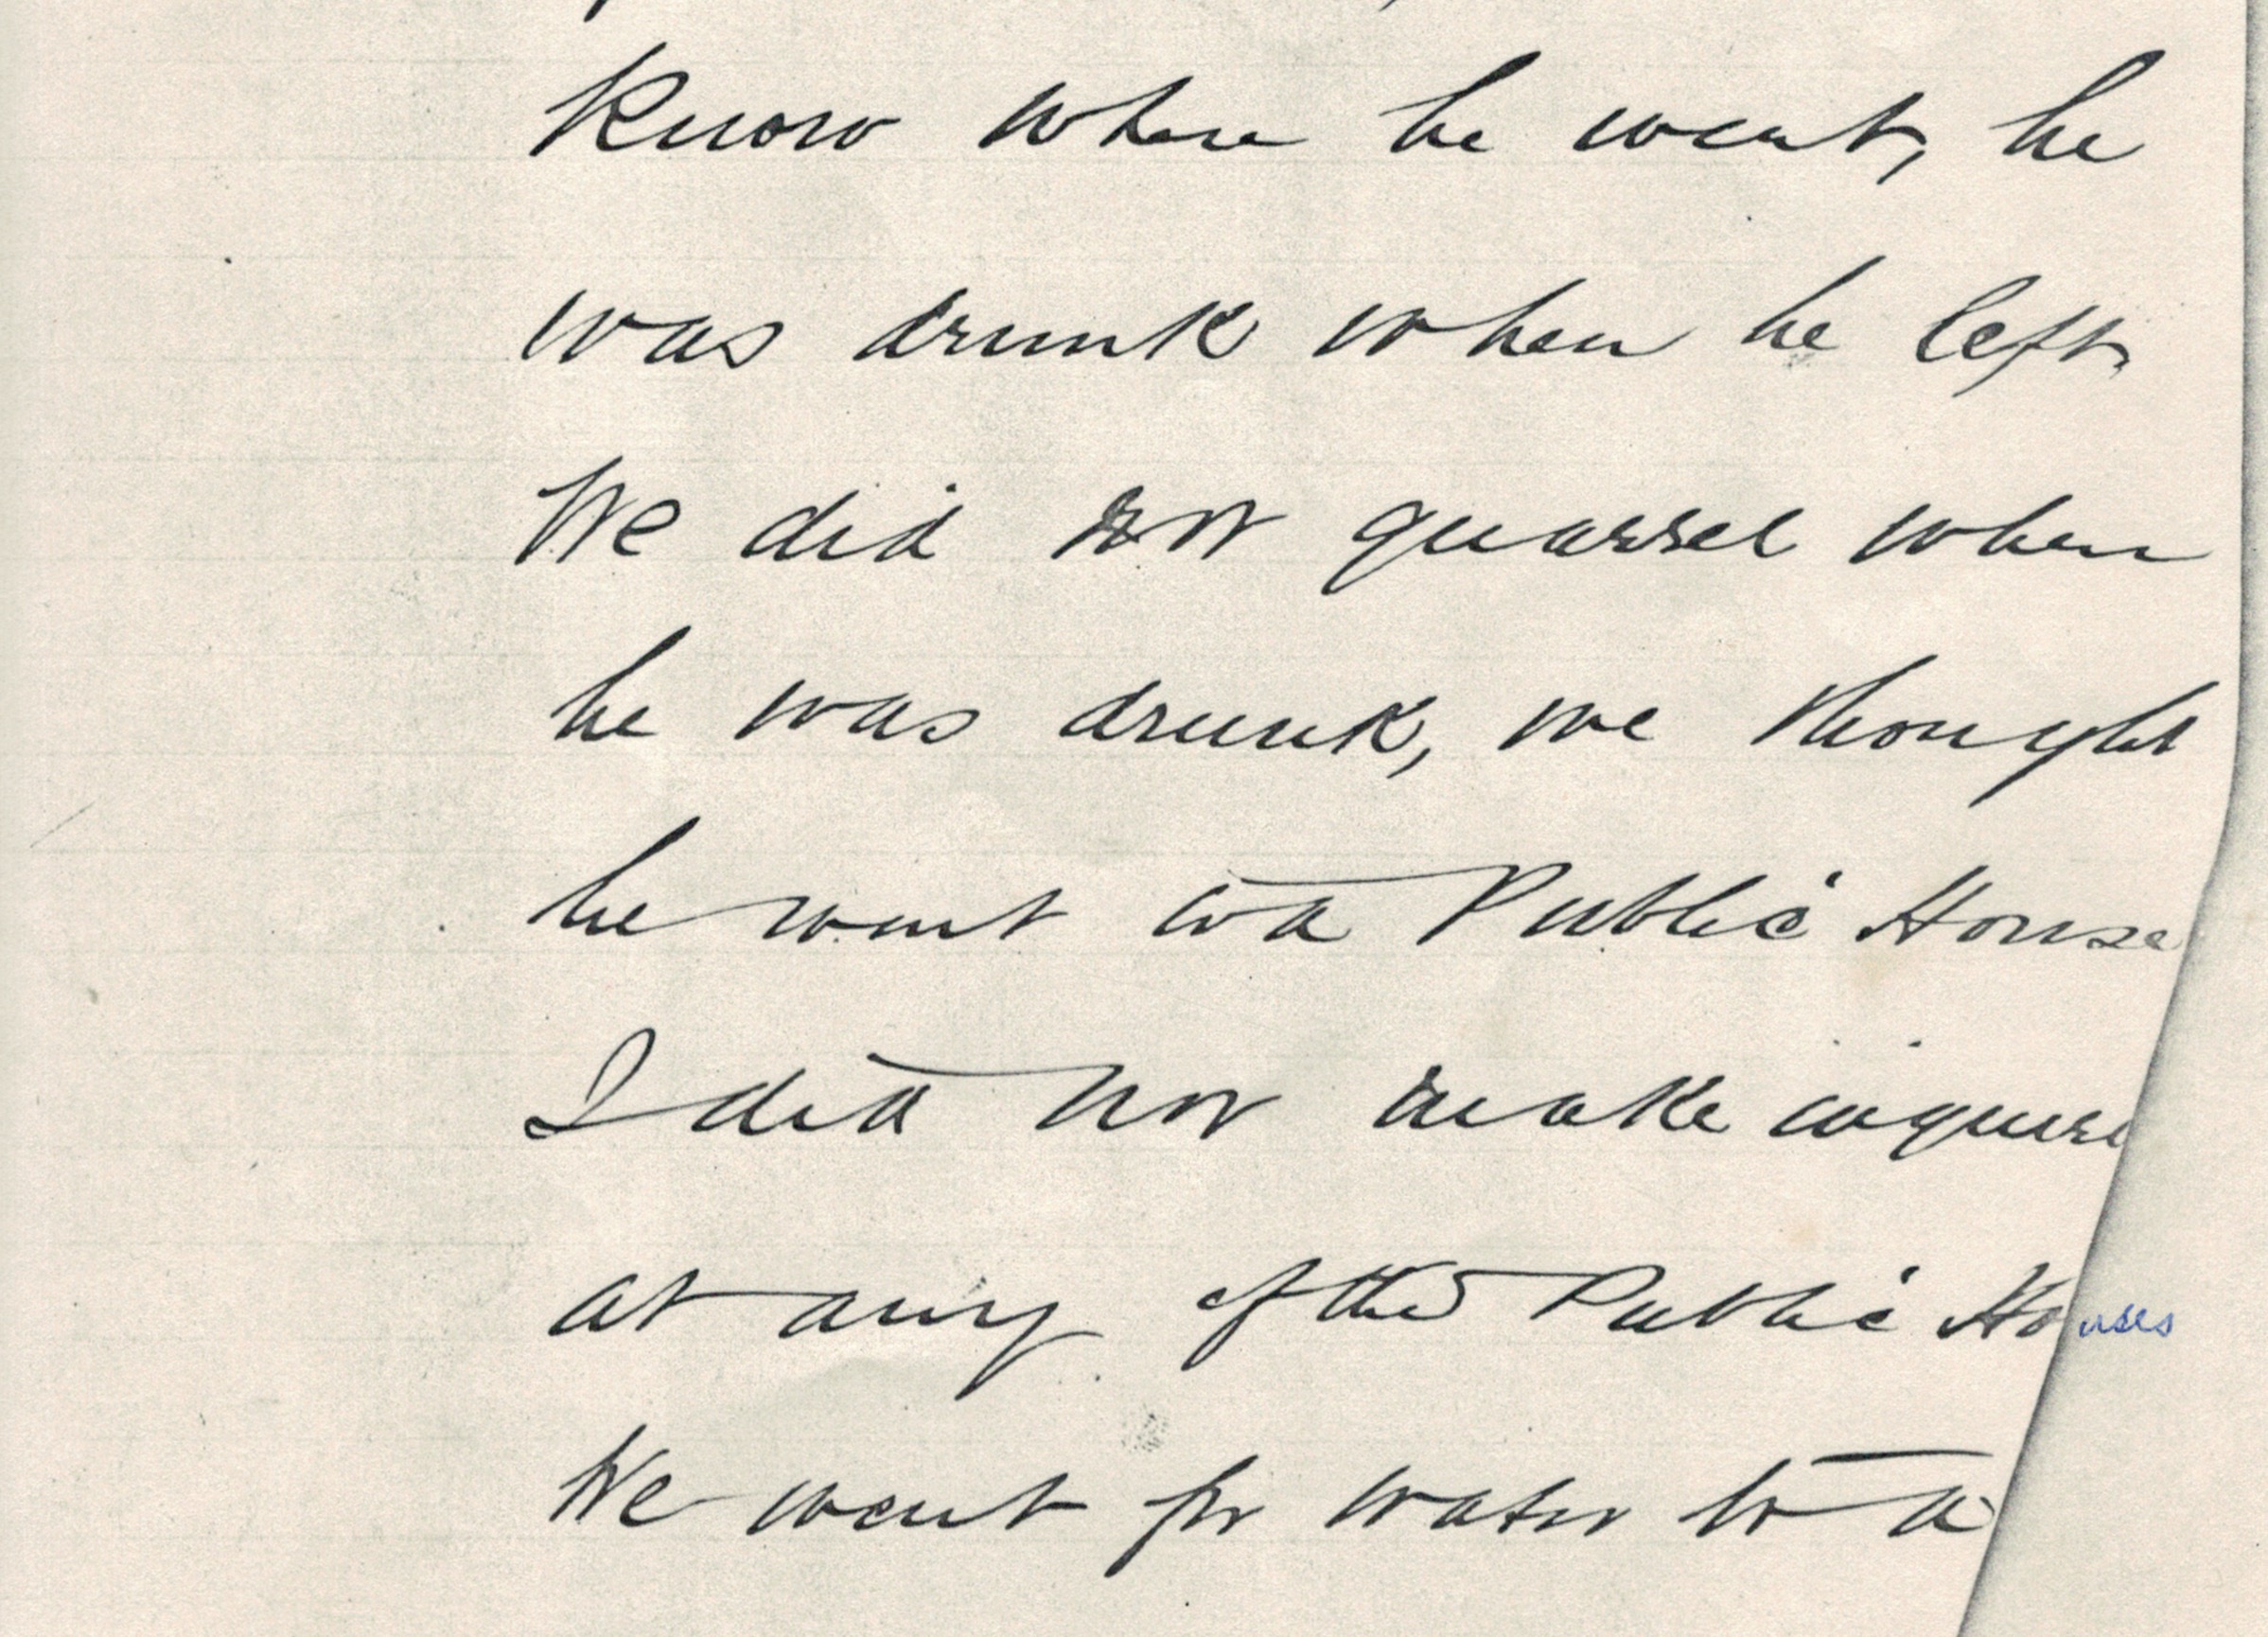 Know where he went, he
was drunk when he left.
We did not quarrel when
he was drunk, we thought
he went to a Public House
I did not make inquire
at any of the Public Houses
We went for water to a